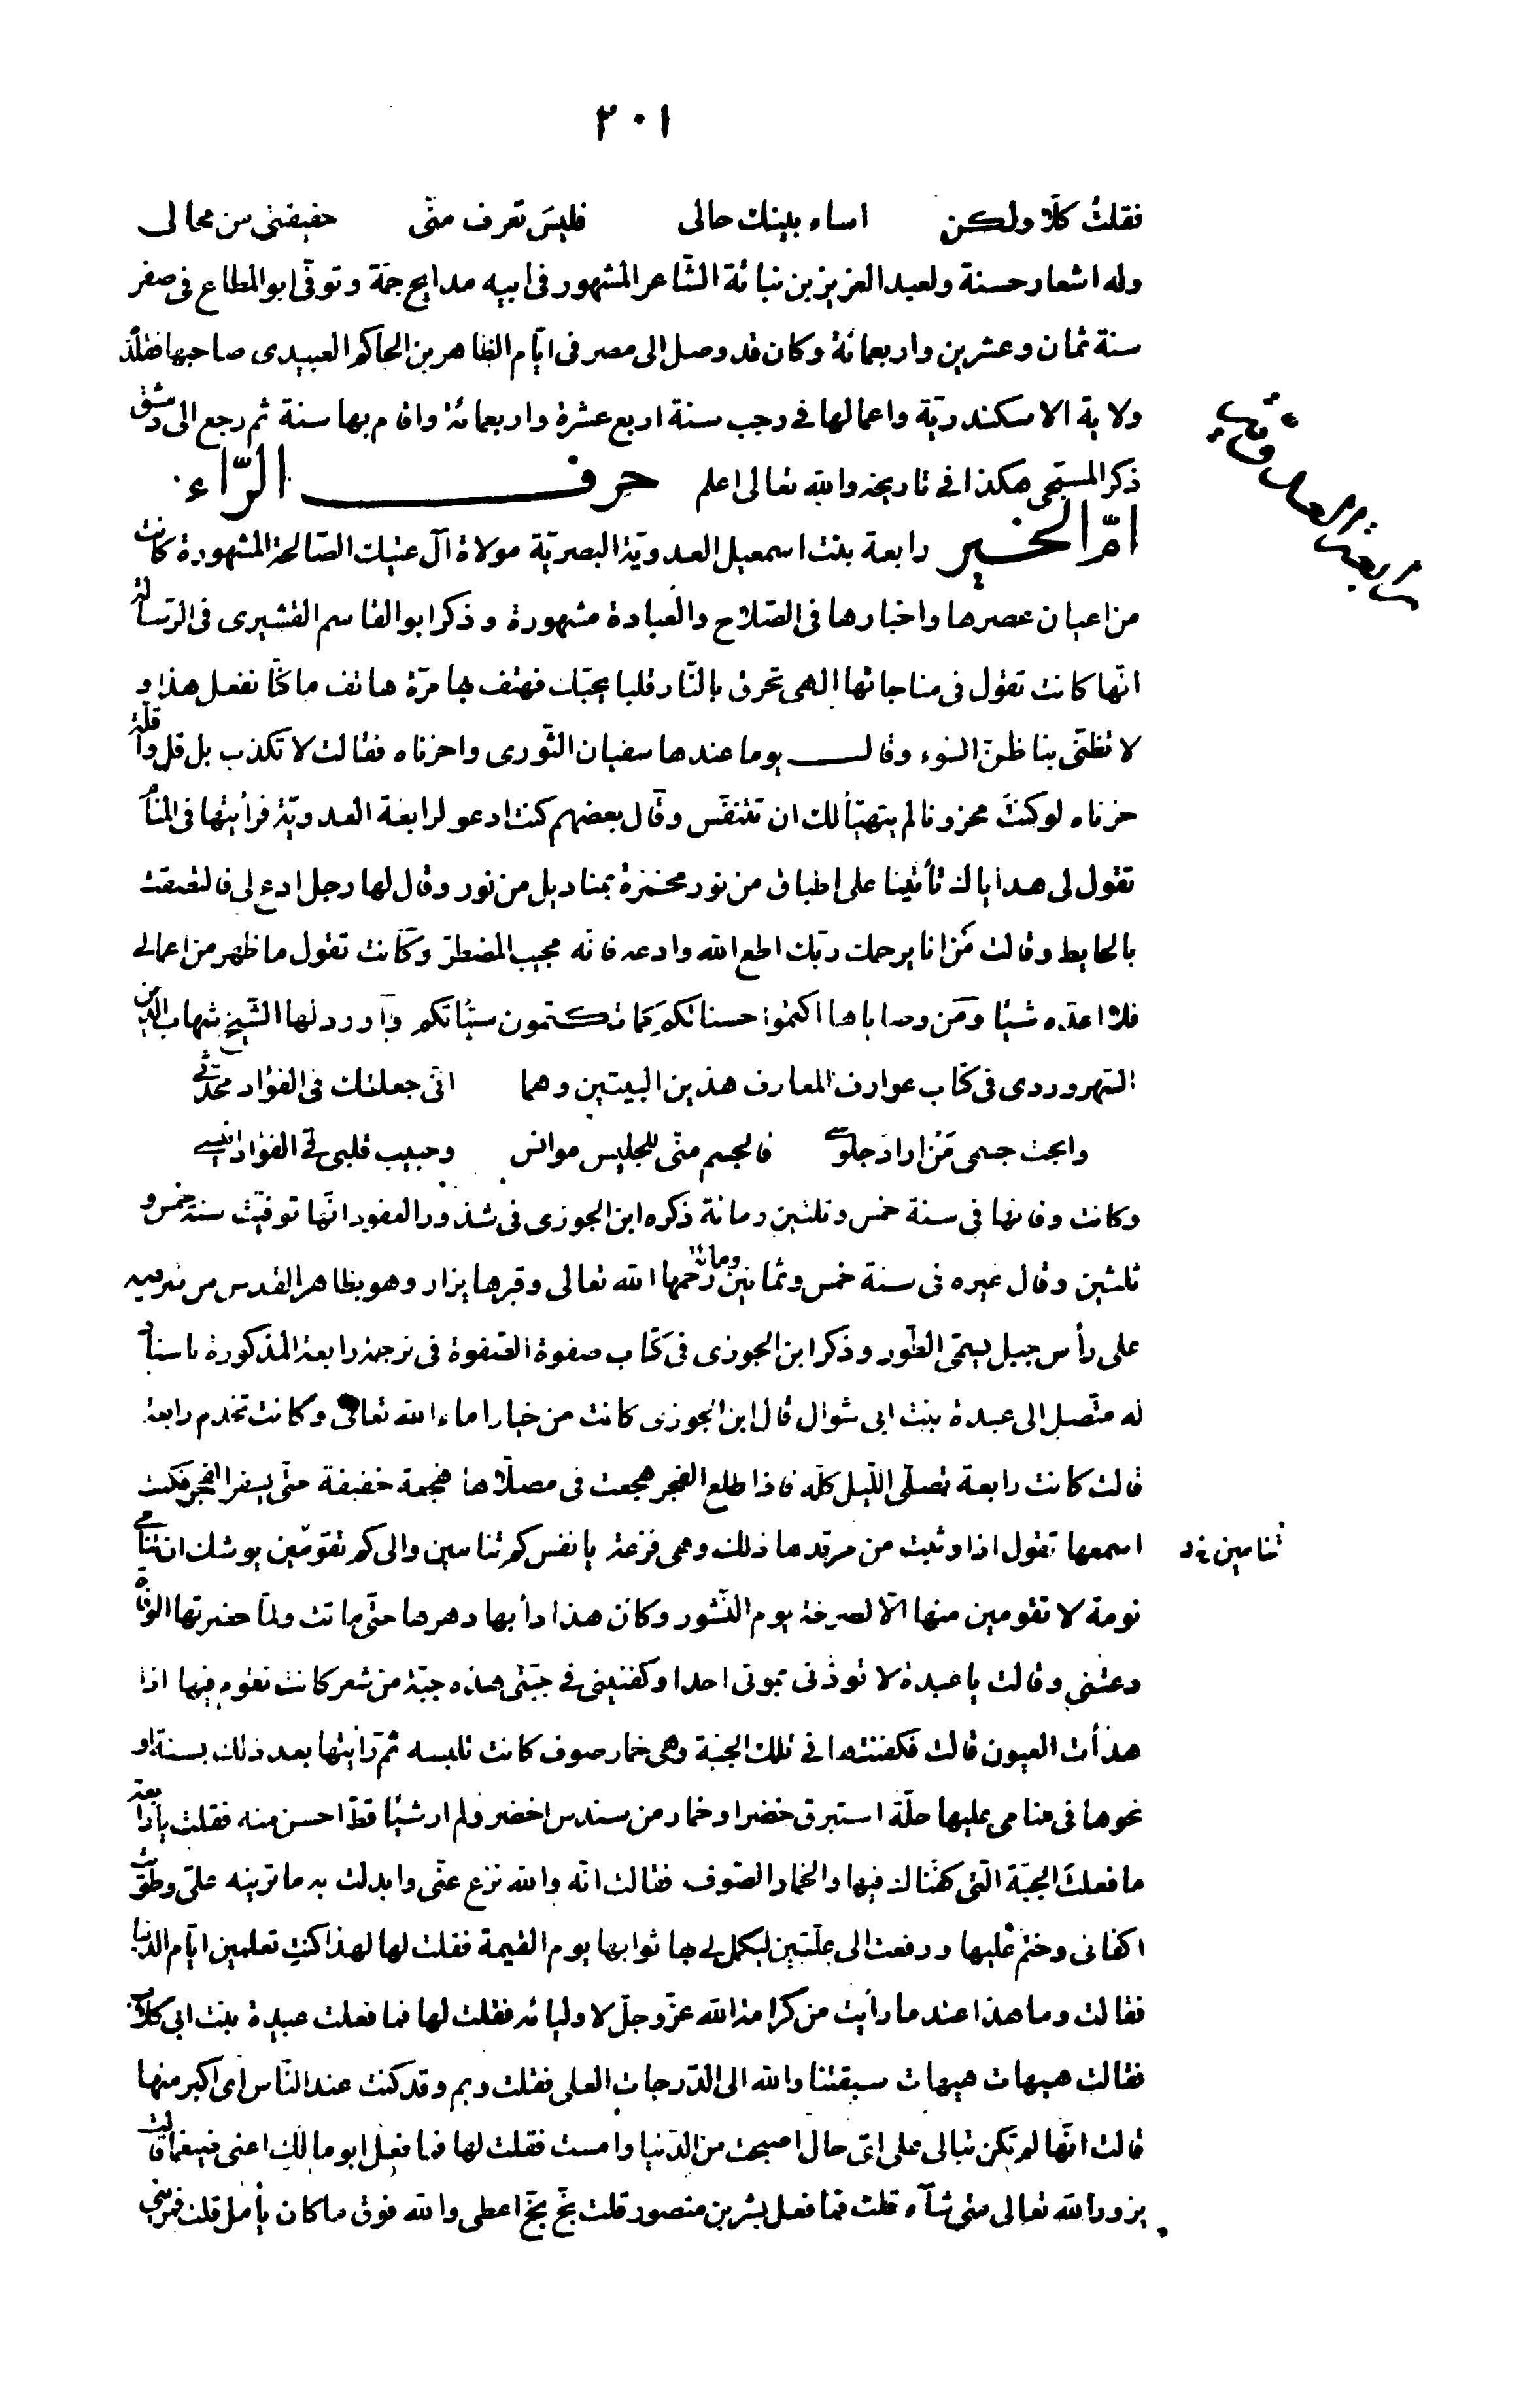 ٢٠١
فقلتُ كلّا ولكن اساء بينك حالى فليسَ تعرف منّى حقيقتى من محالى
وله اشعار حسنة ولعبد العزيز بن نباتة الشّاعر المشهور فى ابيه مدايح جمّة وتوفّى ابو المطاع فى صفر
سنة ثمان وعشرين واربعمائة وكان قد وصل الى مصر فى ايّام الظاهر بن الحاكم العبيدى صاحبها فقلّد
ولاية الاسكندريّة واعمالها فى رجب سنة اربع عشرة واربعمائة واقام بها سنة ثم رجع الى دمشق
ذكر المسبّحى هكذا فى تاريخه والله تعالى اعلم حرف الرّاء
رابعة العدوية
امّ الخير رابعة بنت اسمعيل العدويّة البصريّة مولاة آل عتيك الصّالحة المشهورة كانت
من اعيان عصرها واخبارها فى الصّلاح والعبادة مشهورة وذكر ابو القاسم القشيرى فى الرّسالة
انّها كانت تقول فى مناجاتها الهى تحرق بالنّار قلبا يحبّك فهتف بها مرّة هاتف ما كنّا نفعل هذا و
لا تظنّى بنا ظنّ السّوء وقال يوما عندها سفيان الثّورى واحزناه فقالت لا تكذب بل قل واقلّة
حزناه لو كنتَ محزونا لم يتهيّأ لك ان تتنفّس وقال بعضهم كنت ادعو لرابعة العدويّة فرأيتها فى المنام
تقول لى هداياك تأتينا على اطباق من نور مخمّرة بمناديل من نور وقال لها رجل ادع لى فالتصقت
بالحايط وقالت مَن انا يرحمك ربّك اطع الله وادعه فانّه مجيب المضطرّ وكانت تقول ما ظهر من اعمالى
فلا اعدّه شيئا ومن وصاياها اكتموا حسناتكم كما تكتمون سيّئاتكم واورد لها الشّيخ شهاب الدّين
السّهروردى فى كتاب عوارف المعارف هذين البيتين وهما انّى جعلتك فى الفؤاد محدّثى
وابحت جسمى مَن اراد جلوسى فالجسم منّى للجليس موانس وحبيب قلبى فى الفؤاد انيسى
وكانت وفاتها فى سنة خمس وثلثين ومائة ذكره ابن الجوزى فى شذور العقود انّها توفيّت سنة خمس و
ثلثين وقال غيره فى سنة خمس وثمانين ومائة رحمها الله تعالى وقبرها يزار وهو بظاهر القدس من شرقيه
على رأس جبل يسمّى الطّور وذكر ابن الجوزى فى كتاب صفوة الصّفوة فى ترجمة رابعة المذكورة باسناد
له متّصل الى عبدة بنت ابى شوال قال ابن الجوزى كانت من خيار اماء الله تعالى وكانت تخدم رابعة
قالت كانت رابعة تصلّى اللّيل كلّه فاذا طلع الفجر هجعت فى مصلّاها هجعة خفيفة حتّى يسفر الفجر فكنت
اسمعها تقول اذا وثبت من مرقدها ذلك وهى فزعة يا نفس كم تنامين والى كم تقومين يوشك ان تنامى
تنامين
نومة لا تقومين منها الّا لصرخة يوم النّشور وكان هذا دأبها دهرها حتّى ماتت ولمّا حضرتها الوفاة
دعتنى وقالت يا عبدة لا توذنى بموتى احدا وكفنينى فى جبّتى هذه جبّة من شعر كانت تقوم فيها اذا
هدأت العيون قالت فكفنتها فى تلك الجبّة وهى خمار صوف كانت تلبسه ثمّ رايتها بعد ذلك بسنة او
نحوها فى منامى عليها حلّة استبرق خضرا وخمار من سندس اخضر ولم ار شيئا قطّ احسن منه فقلت يا رابعة
ما فعلت الجبّة الّتى كفّناك فيها والخمار الصّوف فقالت انّه والله نزع عنّى وابدلت به ما ترينه علىّ وطويت
اكفانى وختم عليها ورفعت الى علّيّين ليكمل لى بها ثوابها يوم القيمة فقلت لها لهذا كنتِ تعملين ايّام الدّنيا
فقالت وما هذا عند ما رأيت من كرامة الله عزّ وجلّ لاوليائه فقلت لها فما فعلت عبيدة بنت ابى كلاب
فقالت هيهات هيهات سبقتنا والله الى الدّرجات العلى فقلت وبم وقد كنت عند النّاس اى اكبر منها
قالت انّها لم تكن تبالى على اىّ حال اصبحت من الدّنيا وامست فقلت لها فما فعل ابو مالك اعنى ضيغما قالت
يزور الله تعالى متى شآء قلت فما فعل بشر بن منصور قلت بخّ بخّ اعطى والله فوق ما كان يأمل قلت فمرينى